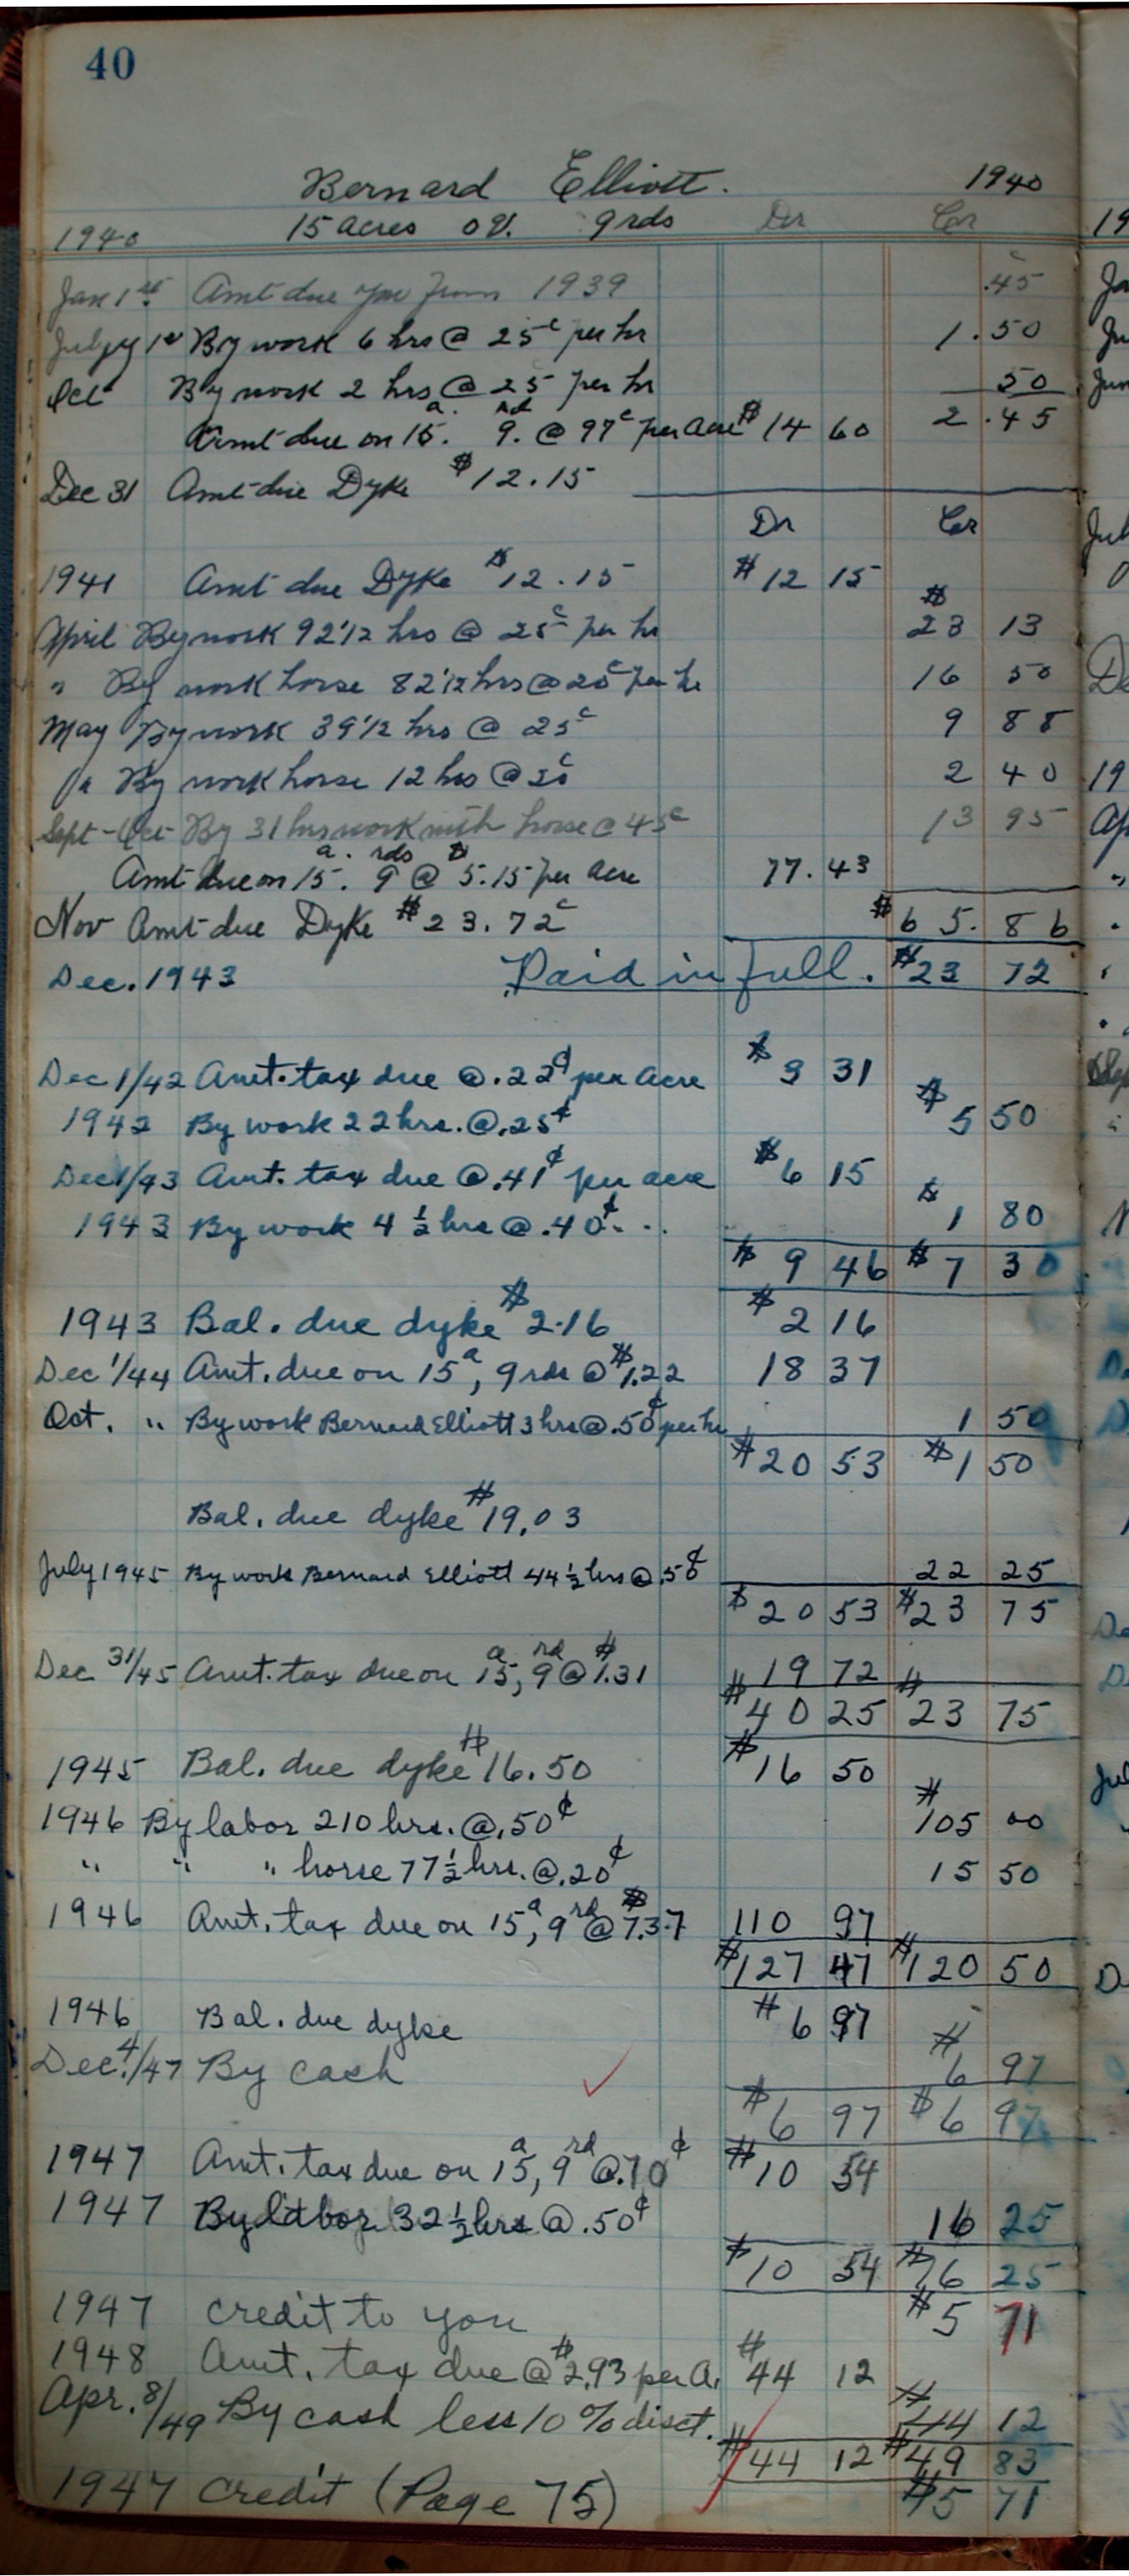 40
Bernard Elliott. 1940
1940 15 acres 0 q. 9 rds Dr Cr
Jan 1st Amt due you from 1939 .45
July 1st By work 6 hrs @ 25c per hr 1.50
Oct By work 2 hrs @ 25 per hr 50
Amt due on 15a. 9rd. @ 97c per acre $14 60 2.45
Dec 31 Amt due Dyke $12.15
Dr Cr
1941 Amt due Dyke $12.15 $12 15
April By work 92 1/2 hrs @ 25c per hr $23 13
" By work horse 82 1/2 hrs @ 20c per hr 16 50
May By work 39 1/2 hrs @ 25c 9 88
By work horse 12 hrs @ 20c 2 40
Sept-Oct By 31 hrs work with horse @ 45c 13 95
Amt due on 15a. 9rds @ $5.15 per acre 77.43
Nov Amt due Dyke $23.72c $65.86
Dec. 1943 Paid in full. $23 72
Dec 1/42 Amt. tax due @ .22¢ per acre $3 31
1942 By work 22 hrs. @ .25¢ $5 50
Dec 1/43 Amt. tax due @ .41¢ per acre $6 15
1943 By work 4 1/2 hrs @ .40¢ . . $1 80
$9 46 $7 30
1943 Bal. due dyke $2.16 $2 16
Dec 1/44 Amt. due on 15a, 9 rds @ $1.22 18 37
Oct. " By work Bernard Elliott 3 hrs @ .50¢ per hr 1 50
$20 53 $1 50
Bal. due dyke $19.03
July 1945 By work Bernard Elliott 44 1/2 hrs @ .50¢ 22 25
$20 53 $23 75
Dec 31/45 Amt. tax due on 15a, 9rd @ $1.31 19 72
$40 25 $23 75
1945 Bal. due dyke $16.50 $16 50
1946 By labor 210 hrs. @ .50¢ $105 00
" " " horse 77 1/2 hrs. @ .20¢ 15 50
1946 Amt. tax due on 15a, 9rd @ $7.37 110 97
$127 47 $120 50
1946 Bal. due dyke $6 97
Dec. 4/47 By cash $6 97
$6 97 $6 97
1947 Amt. tax due on 15a, 9rd @ .70¢ $10 54
1947 By labor 32 1/2 hrs @ .50¢ 16 25
$10 54 $16 25
1947 credit to you $5 71
1948 Amt. tax due @ $2.93 per A. $44 12
Apr. 8/49 By cash less 10% disct. $44 12
$44 12 $49 83
1947 credit (Page 75) $5 71